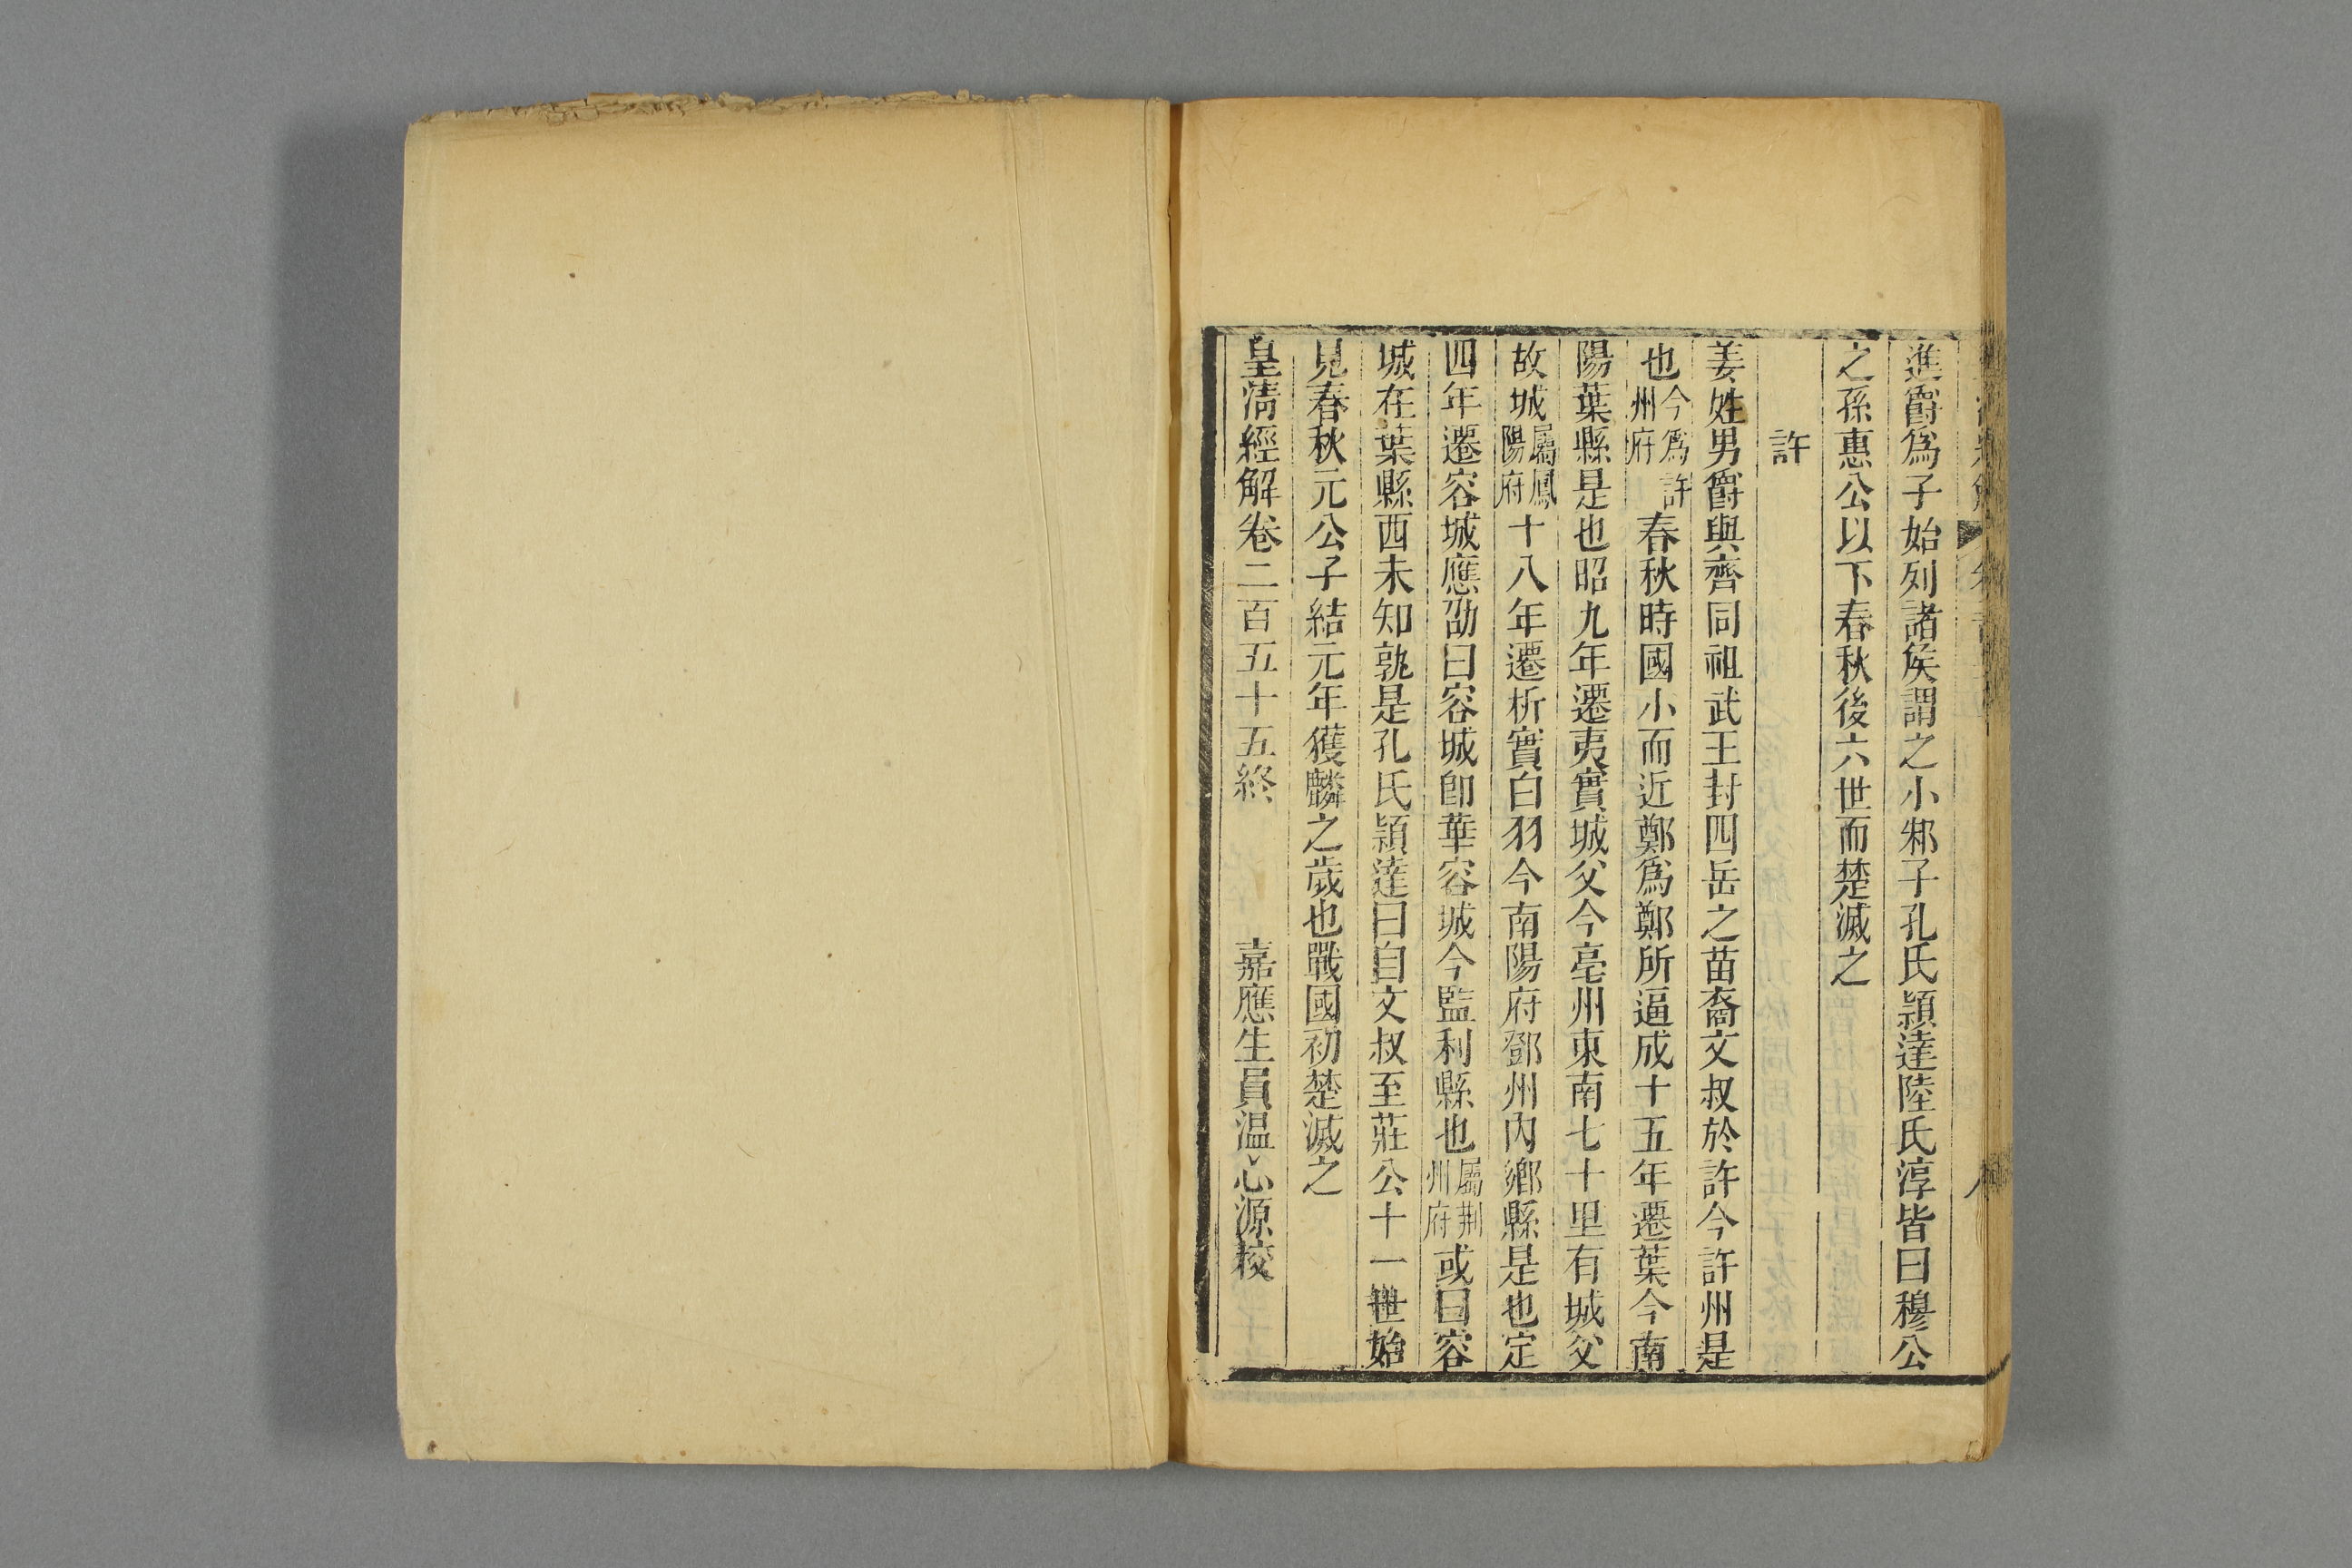 進爵爲子始列諸矦謂之小邾子孔氏頴達陸氏淳皆曰穆公
之孫惠公以下春秋後六世而楚滅之
許
姜姓男爵與齊同祖武王封四岳之苗裔文叔於許今許州是
也今爲許州府春秋時國小而近鄭爲鄭所逼成十五年遷葉今南
陽葉縣是也昭九年遷夷實城父今亳州東南七十里有城父
故城屬鳳陽府十八年遷析實白羽今南陽府鄧州內鄉縣是也定
四年遷容城應劭曰容城卽華容城今監利縣也屬荆州府或曰容
城在葉縣西未知孰是孔氏頴達曰自文叔至莊公十一世始
見春秋元公子結元年獲麟之歲也戰國初楚滅之
皇清經解卷二百五十五終
嘉應生員温心源校